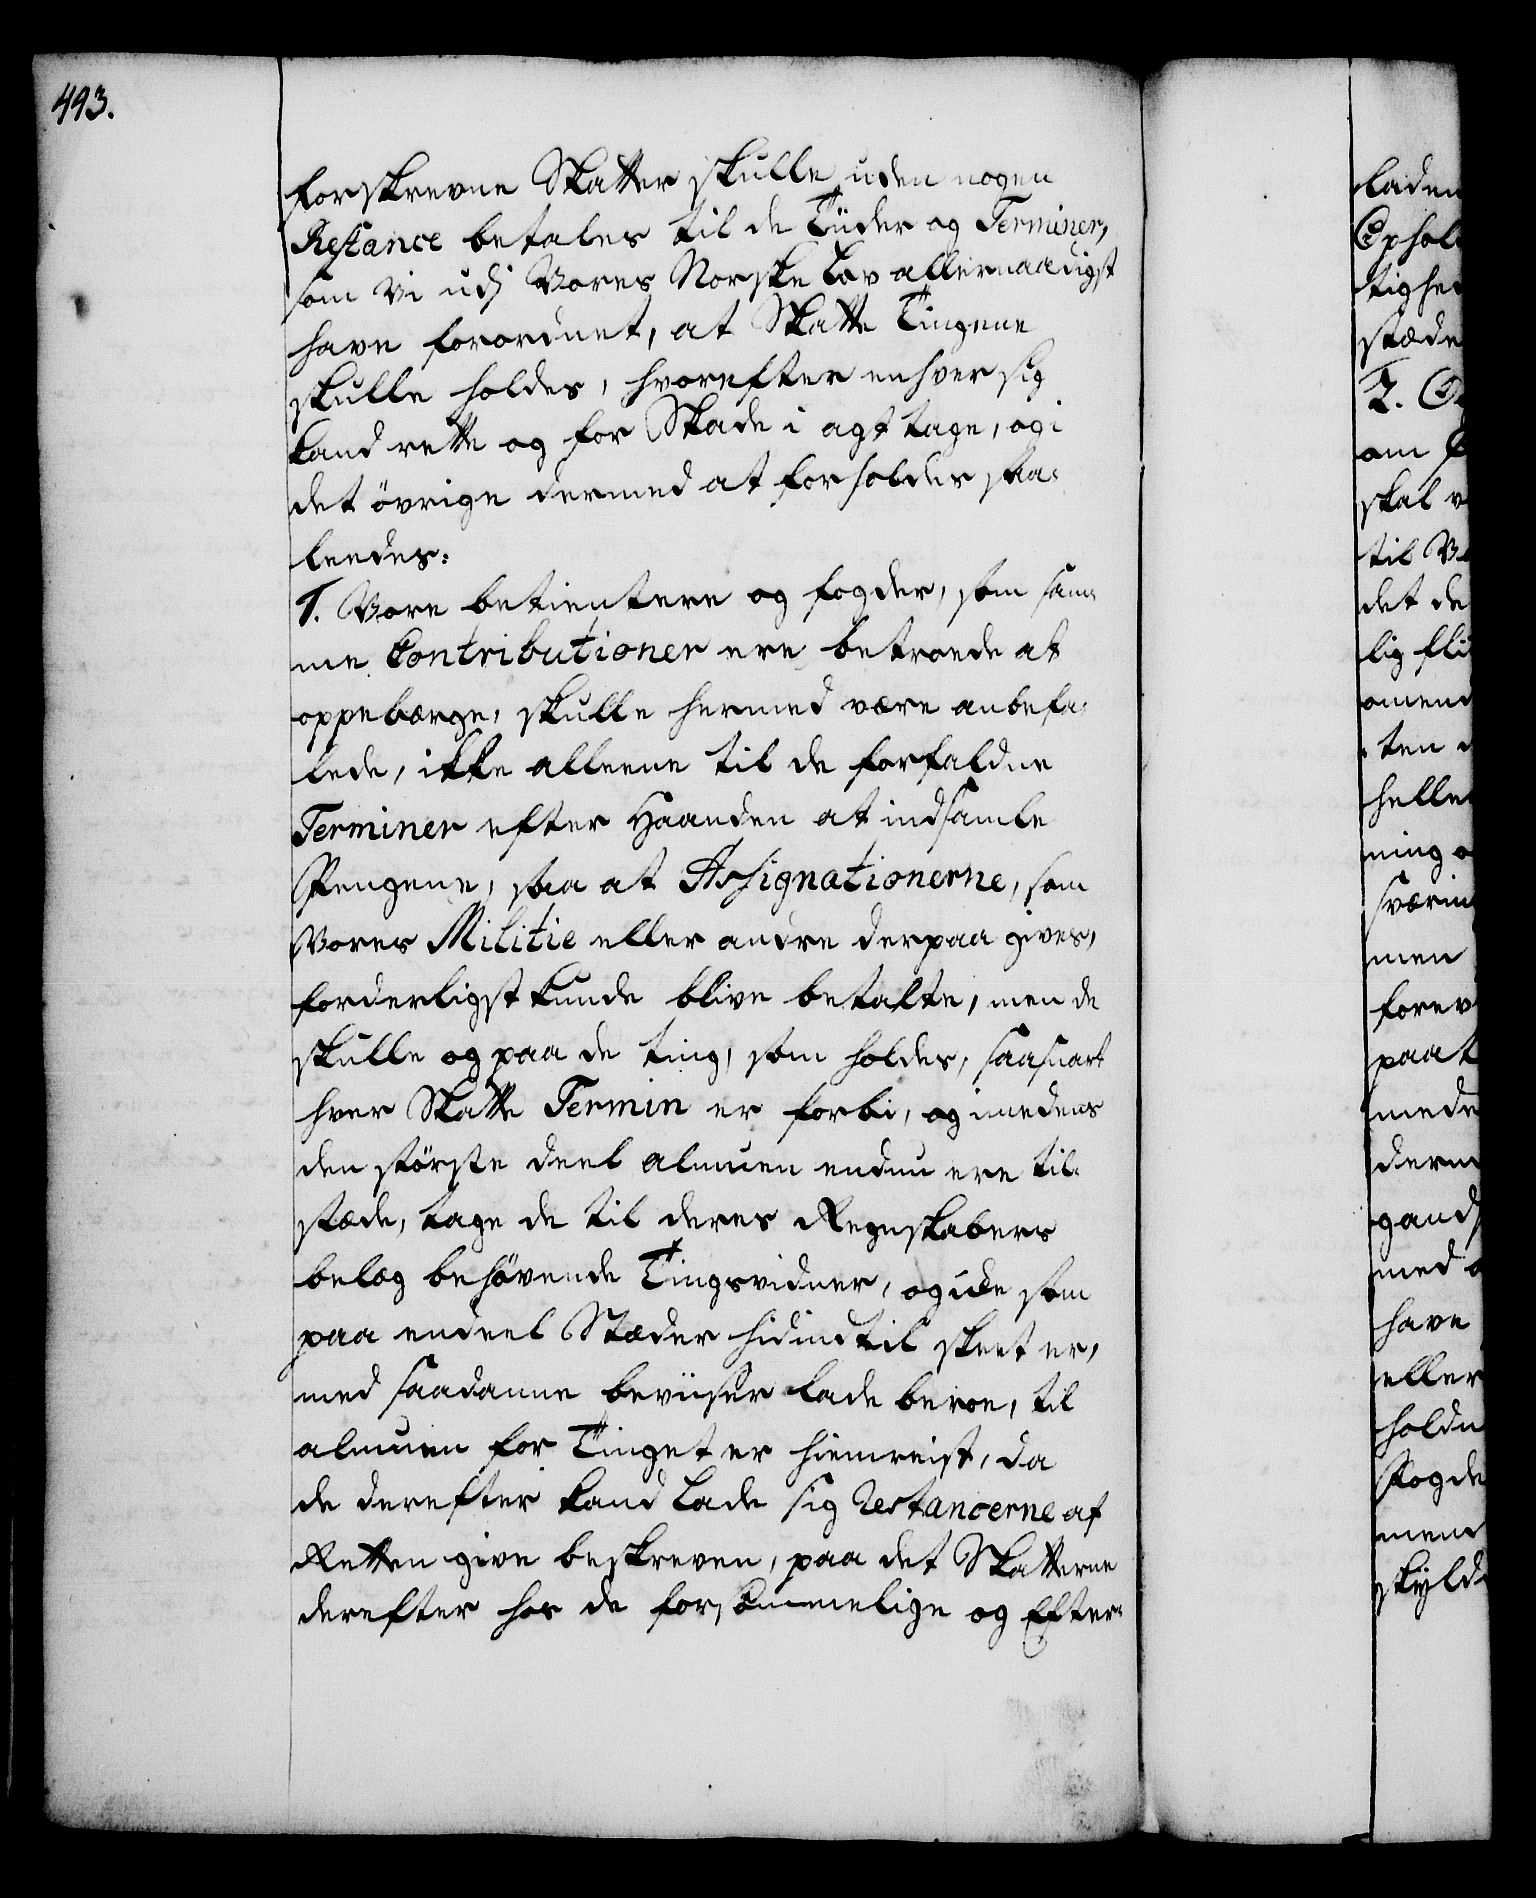 493.
forskrevne Skatter skulle uden nogen
Restance betales til de Tiider og Terminer,
som Vi udj Vores Norske Lov allernaadigst
have forordnet, at Skatte Tingene
skulle holdes, hvorefter enhver sig
kand rette og for Skade i agt tage, og i
det øvrige dermed at forholdes saa-
leedes:
1. Vore betientere og fogder, som sam-
me Contributioner ere betroede at
oppebærge, skulle hermed være anbefa-
lede, ikke alleene til de forfaldne
Terminer efter Haanden at indsamle
Pengene, saa at Assignationerne, som
Vores Militie eller andre derpaa gives,
forderligst kunde blive betalte, men de
skulle og paa de ting, som holdes, saasnart
hver Skatte Termin er forbi, og imedens
den störste deel almuen endnu ere til-
stæde, tage de til deres Regnskabers
belæg behövende Tingsvidner, og icke som
paa endeel Stæder hidindtil skeet er,
med saadanne beviiser lade beroe, til
almuen for Tinget er hiemreist, da
de derefter kand lade sig Restancerne af
Retten give beskreven, paa det Skatterne
derefter hos de forsömmelige og Efter-
laden
Ophol
tighed
stæde
2. O
om
skal v
til V
det de
lig fli
omend
ten
helle
ning o
sværin
men
forev
paa t
mede
derm
gands
med
have
eller
holdn
Fogde
men
skyld